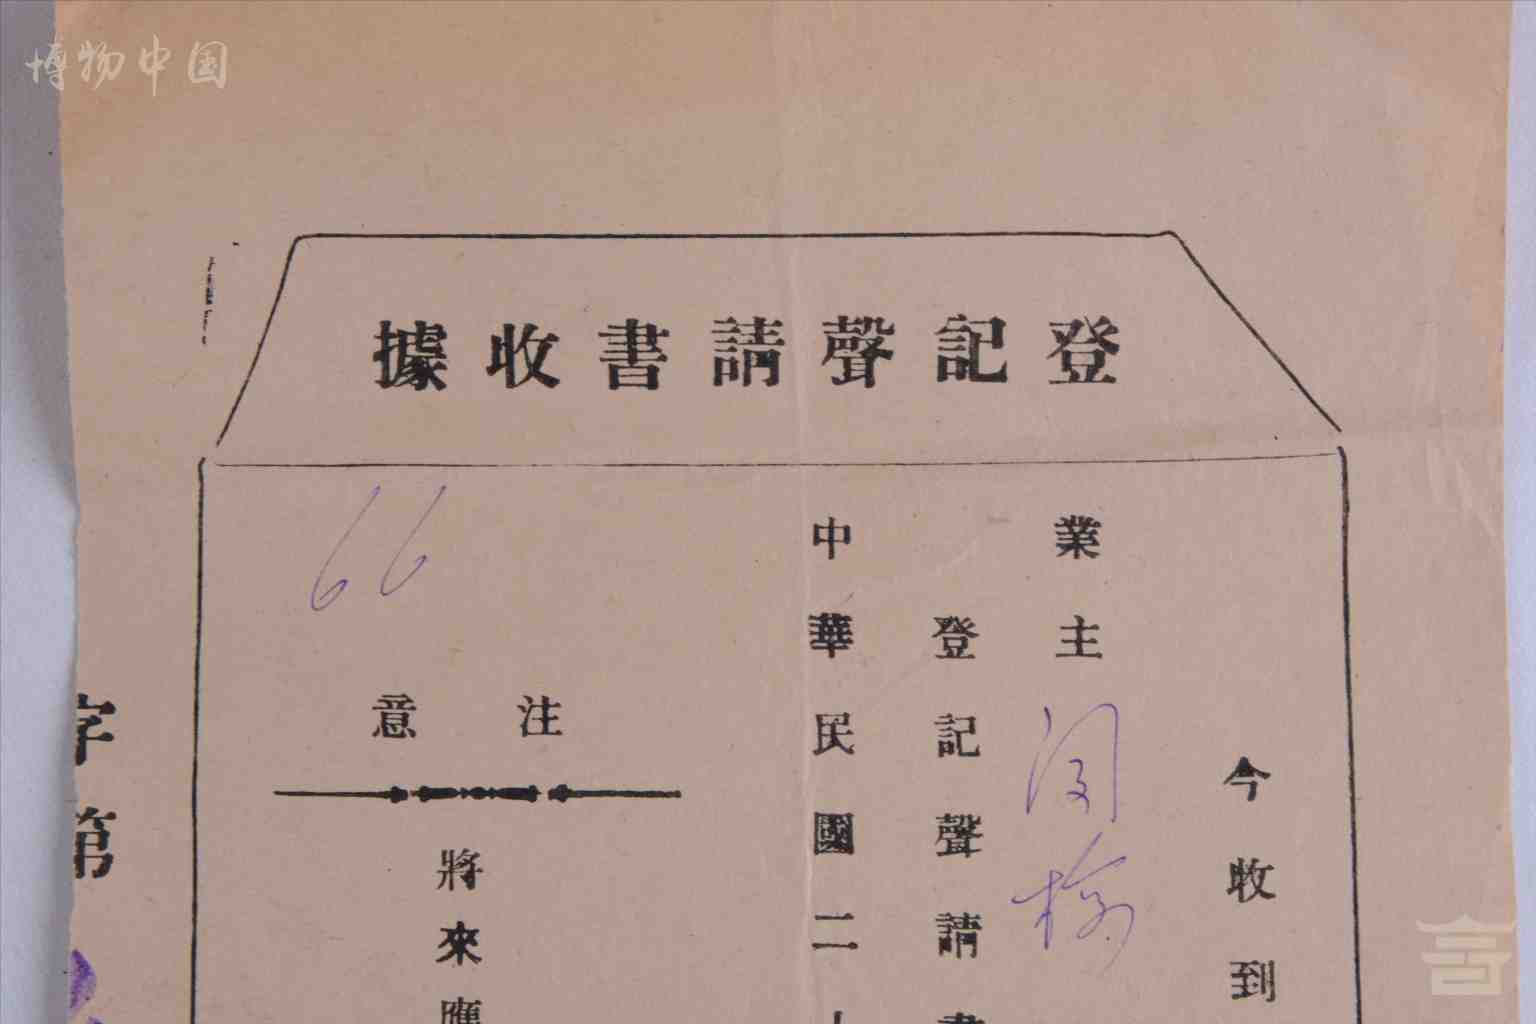 博物中国
登記聲請書收據
今收到
業主
登記聲請書
中華民國二十
66
注意
將來應
字第